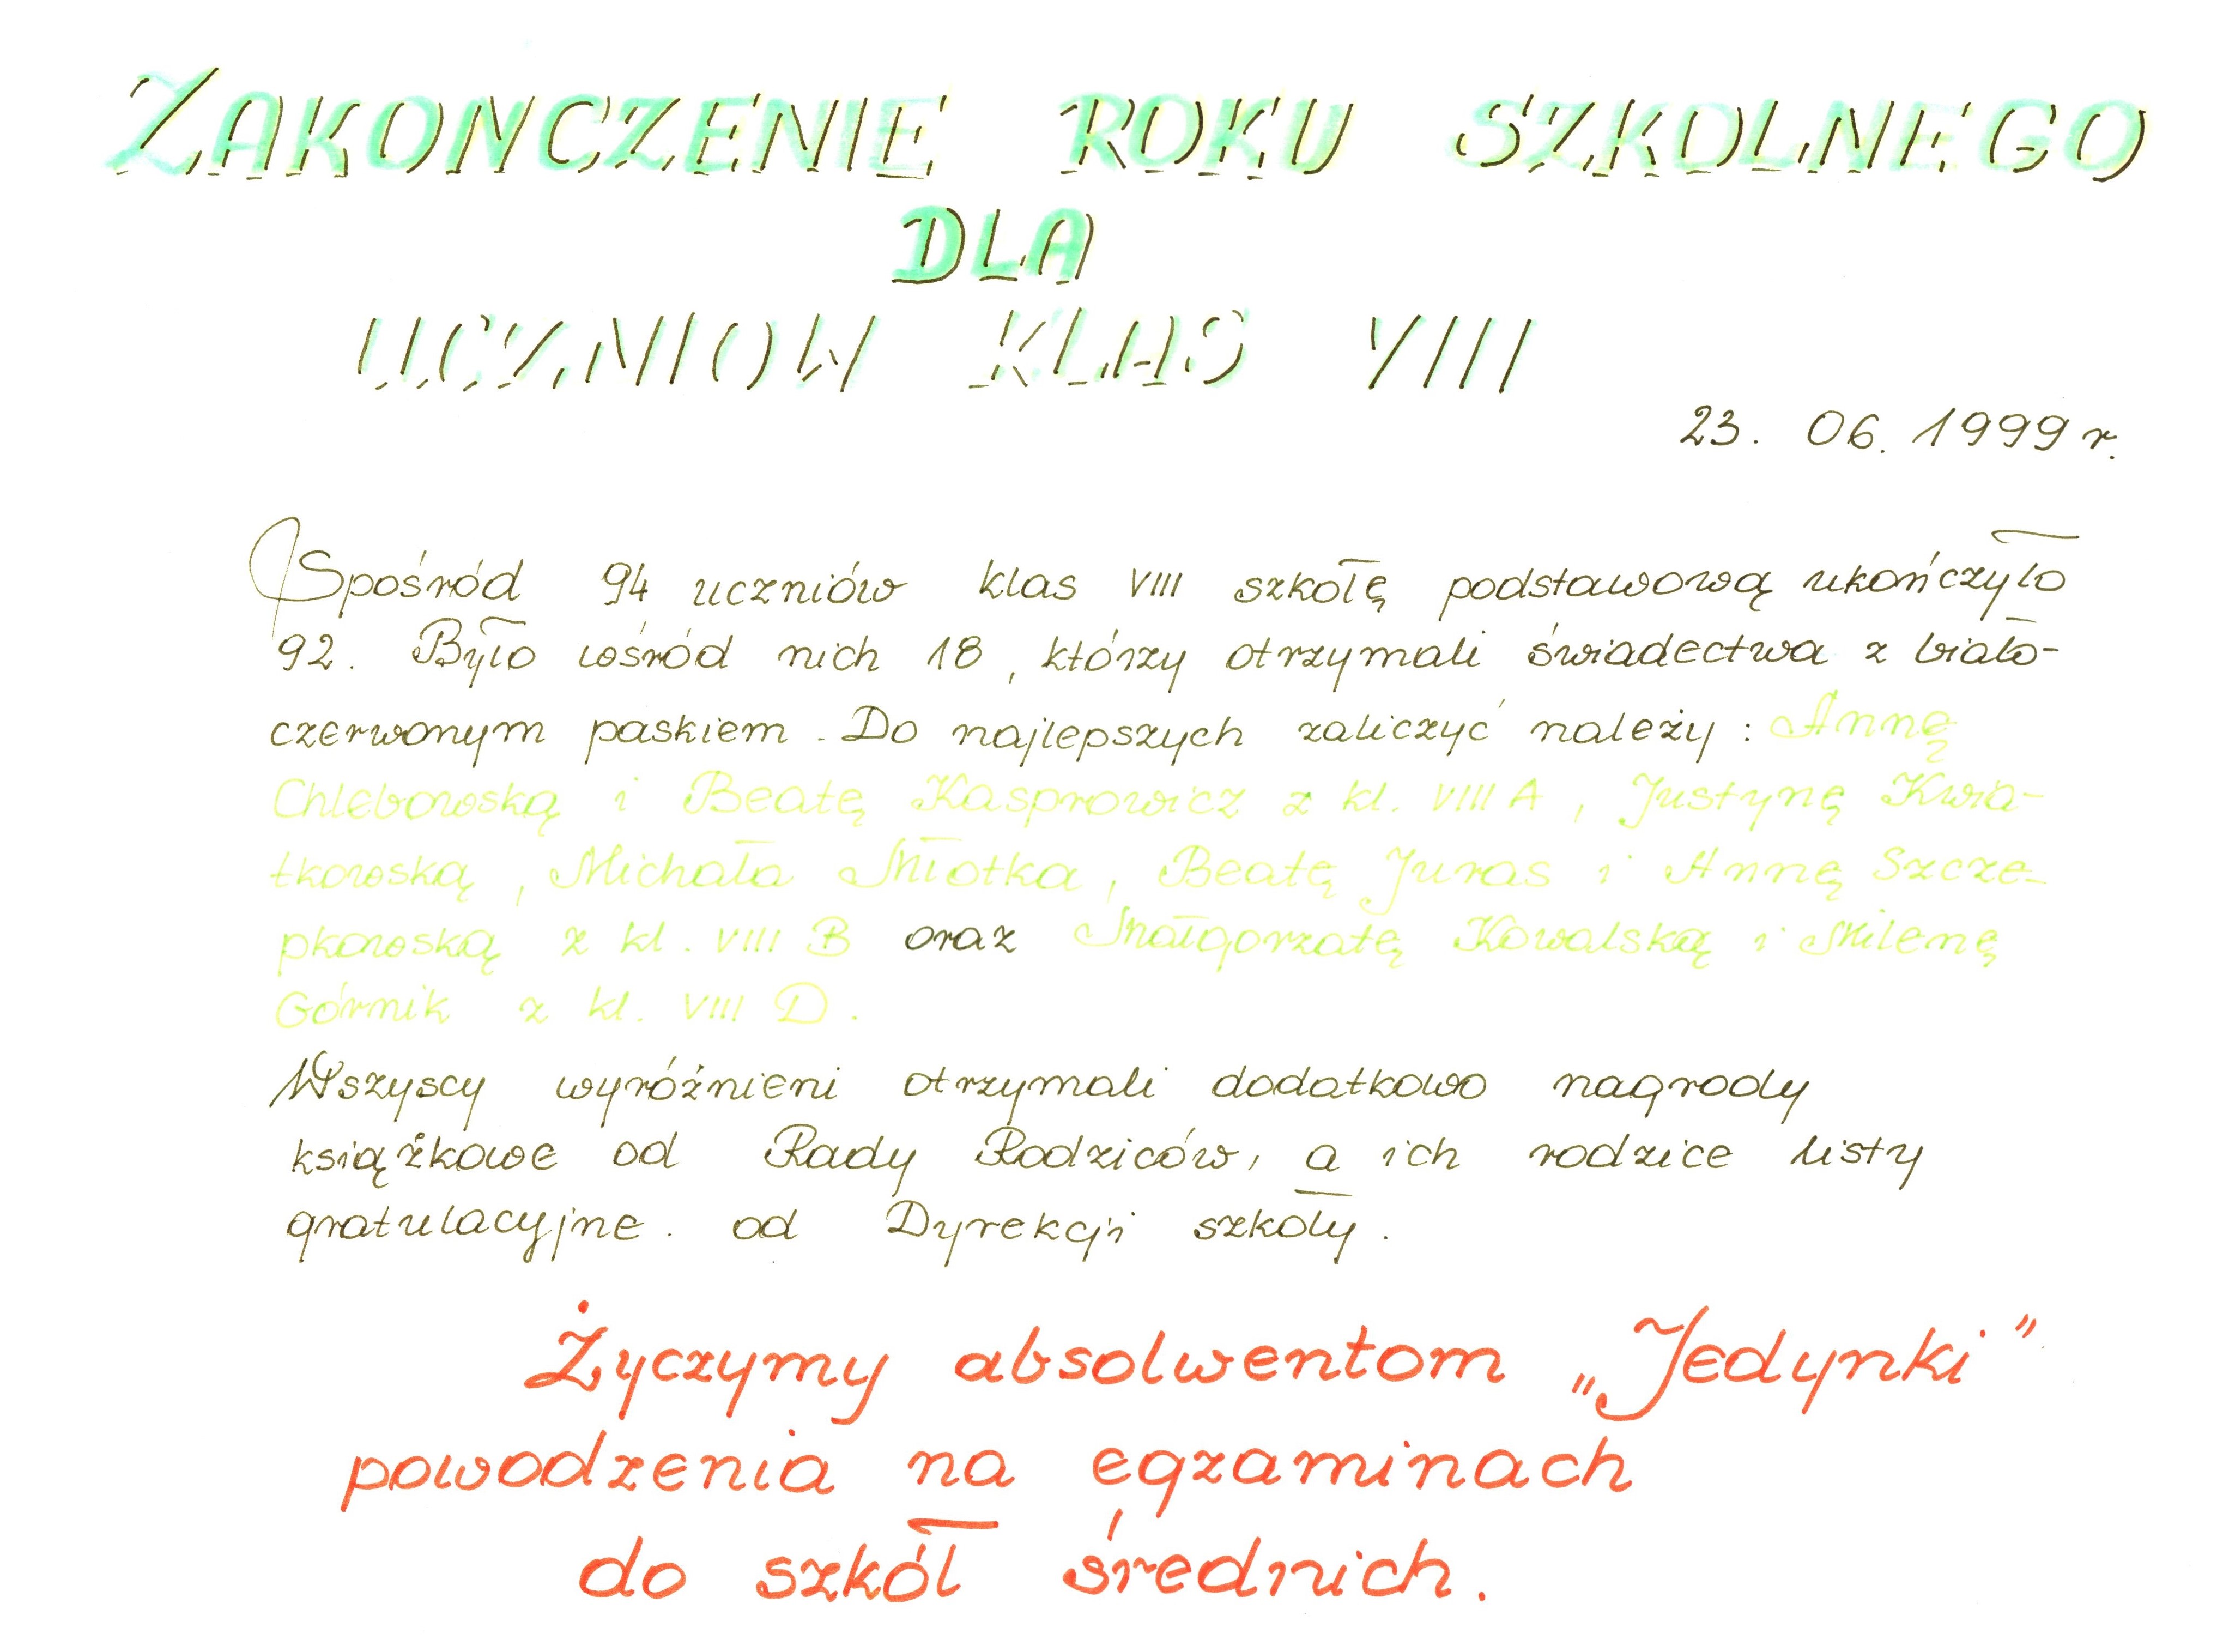 ZAKONCZENIE ROKU SZKOLNEGO
DLA
UCZNIOW KLAS VIII
23. 06. 1999 r.
Spośród 94 uczniów klas VIII szkołę podstawową ukończyło
92. Było wśród nich 18, którzy otrzymali świadectwa z biało-
czerwonym paskiem. Do najlepszych zaliczyć należy: Annę
Chlebowską i Beatę Kasprowicz z kl. VIII A, Justynę Kwia-
tkowską, Michała Młotka, Beatę Juras i Annę Szcze-
pkowską z kl. VIII B oraz Małgorzatę Kowalską i Milenę
Górnik z kl. VIII D.
Wszyscy wyróżnieni otrzymali dodatkowo nagrody
książkowe od Rady Rodziców, a ich rodzice listy
gratulacyjne. od Dyrekcji szkoły.
Życzymy absolwentom „Jedynki”
powodzenia na egzaminach
do szkół średnich.